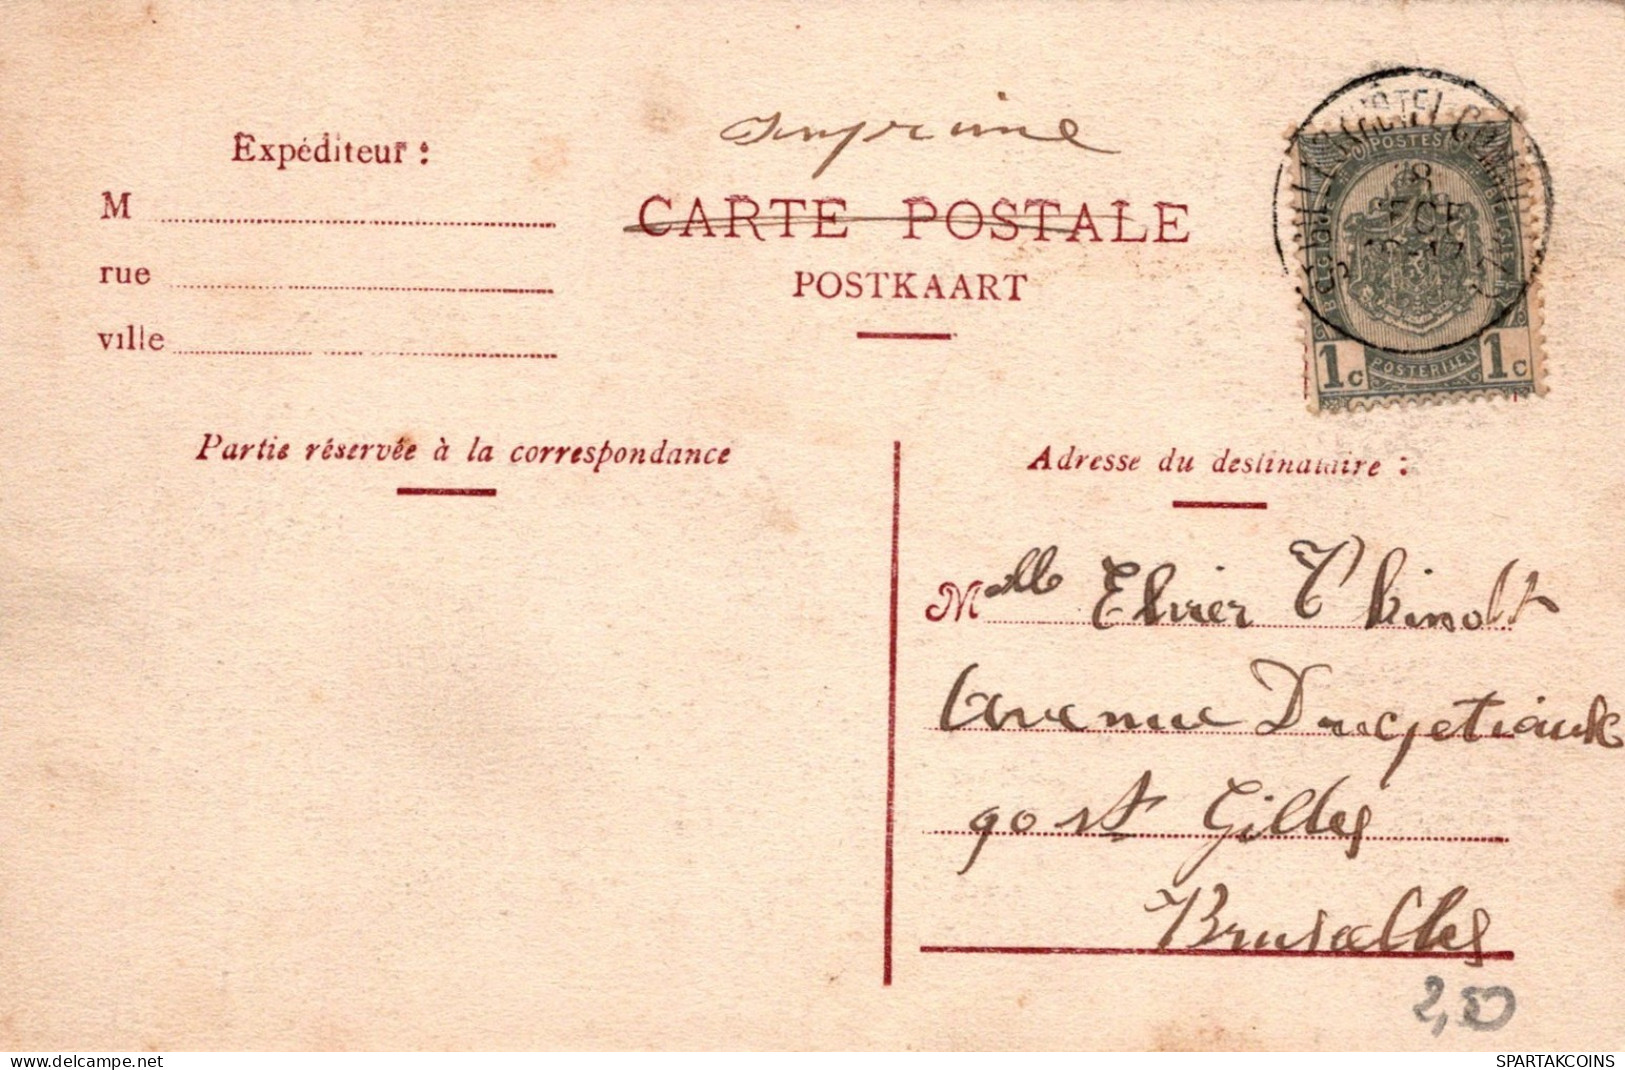 Imprimé
Expéditeur :
M
rue
ville
CARTE POSTALE
POSTKAART
POSTES
1c POSTERIJEN 1c
Partie réservée à la correspondance
Adresse du destinataire :
Melle Elvier Thinolt
Avenue Ducpetiaux
90 st Gilles
Bruxelles
2,50
SPARTAKCOINS